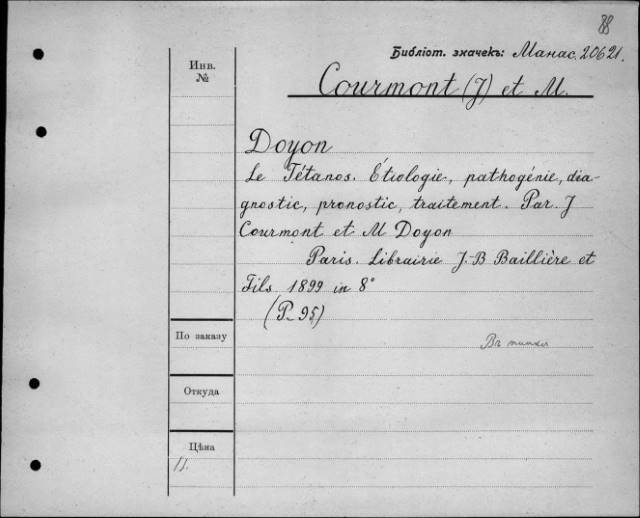 88
Библіот. значекъ: Манас. 20621.
Инв.
№
Courmont (J) et M.
Doyon
Le Tétanos. Étiologie, pathogénie, dia-
gnostic, pronostic, traitement. Par J
Courmont et M Doyon
Paris. Librairie J.-B Baillière et
Fils 1899 in 8°
(P_95)
По заказу
Въ папкѣ
Откуда
Цѣна